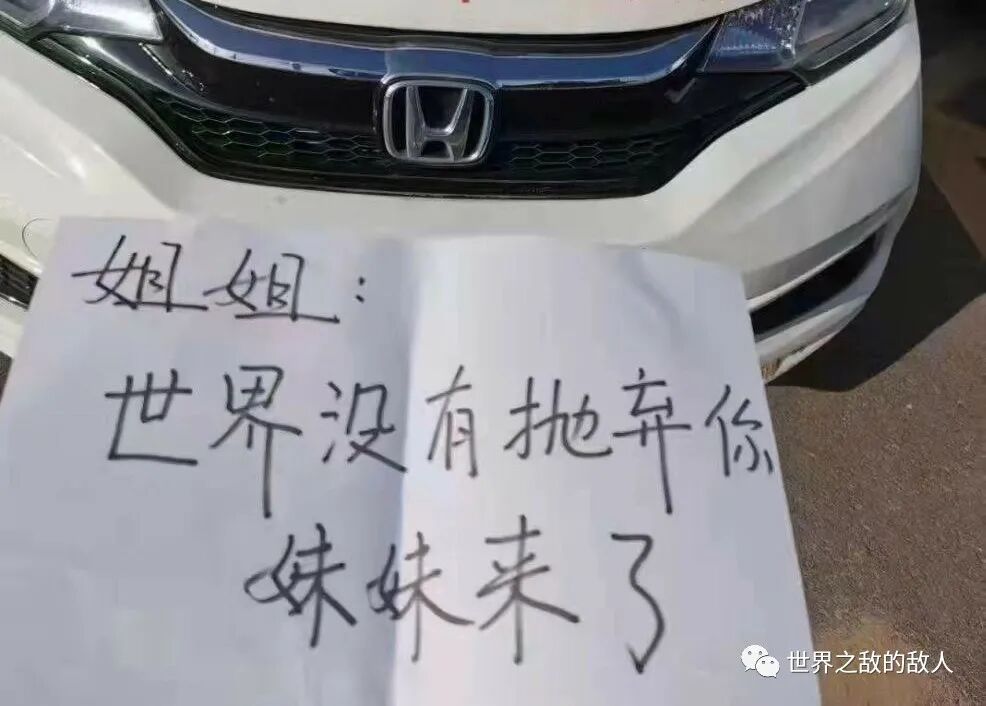 姐姐：
世界没有抛弃你
妹妹来了
世界之敌的敌人